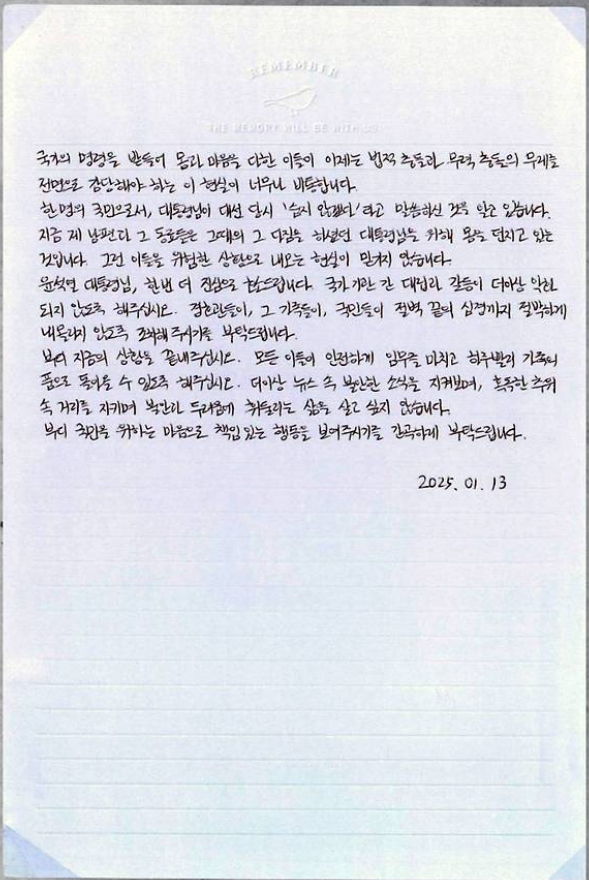 REMEMBER
THE MEMORY WILL BE WITH US
국가의 명령을 받들어 몸과 마음을 다한 이들이 이제는 법적 충돌과 무력 충돌의 무게를
전면으로 감당해야 하는 이 현실이 너무나 비통합니다.
한 명의 국민으로서, 대통령님이 대선 당시 '숨지 않겠다'라고 말씀하신 것을 알고 있습니다.
지금 제 남편과 그 동료들은 그때의 그 다짐을 하셨던 대통령님을 위해 몸을 던지고 있는
것입니다. 그런 이들을 위험한 상황으로 내모는 현실이 믿겨지지 않습니다.
윤석열 대통령님, 한번 더 진심으로 호소드립니다. 국가기관 간 대립과 갈등이 더이상 악화
되지 않도록 해주십시오. 경호관들이, 그 가족들이, 국민들이 절벽 끝의 심경까지 절박하게
내몰리지 않도록 조치해주시기를 부탁드립니다.
부디 지금의 상황을 끝내주십시오. 모든 이들이 안전하게 임무를 마치고 하루빨리 가족의
품으로 돌아올 수 있도록 해주십시오. 더이상 뉴스 속 불안한 소식을 지켜보며, 혹독한 추위
속 거리를 지키며 불안과 두려움에 휘둘리는 삶을 살고 싶지 않습니다.
부디 국민을 위하는 마음으로 책임 있는 행동을 보여주시기를 간곡하게 부탁드립니다.
2025. 01. 13